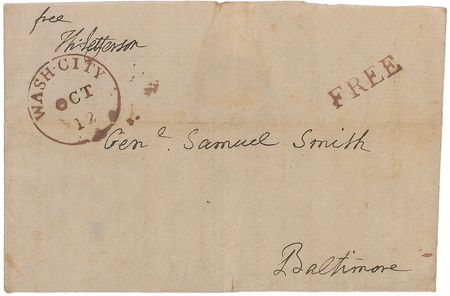 free
Th: Jefferson
WASH·CITY
OCT
12
FREE
Genˡ. Samuel Smith
Baltimore